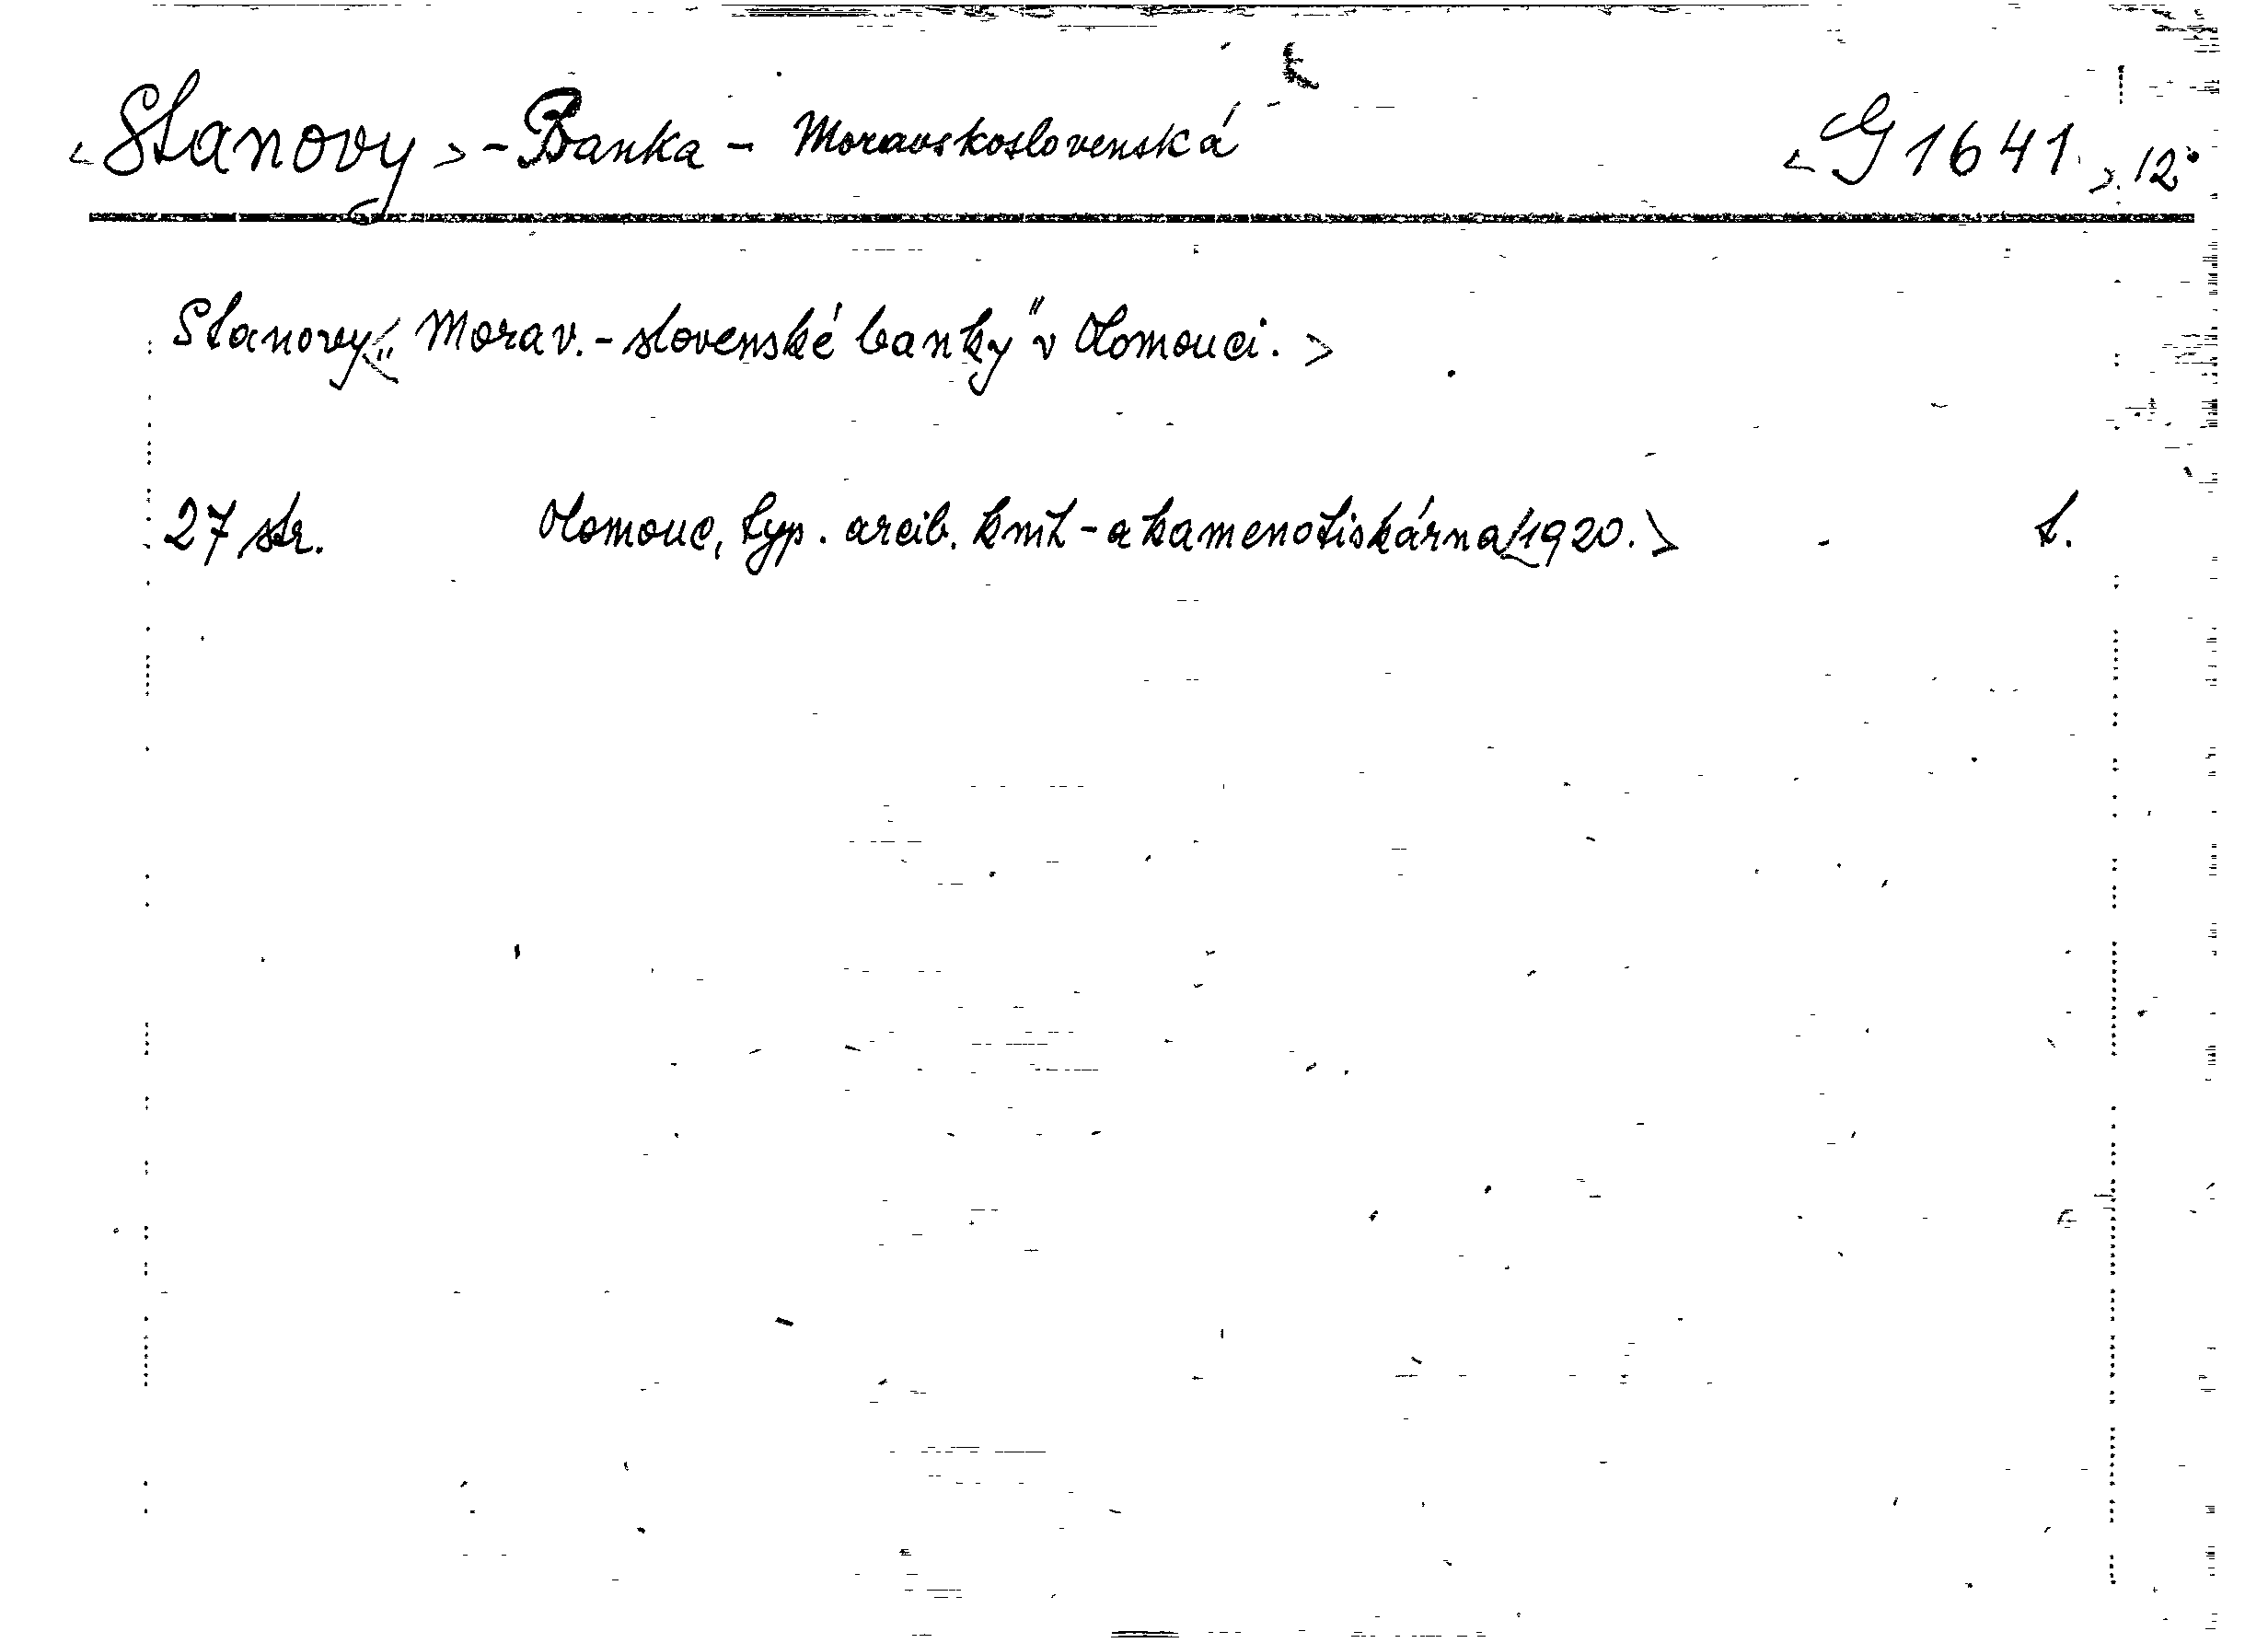 <Stanovy> - Banka - Moravskoslovenská <G 1641.>. 12°
Stanovy <„Morav. - slovenské banky" v Olomouci.>
27 str. Olomouc, typ. arcib. kniht - a kamenotiskárna <1920.> - t.